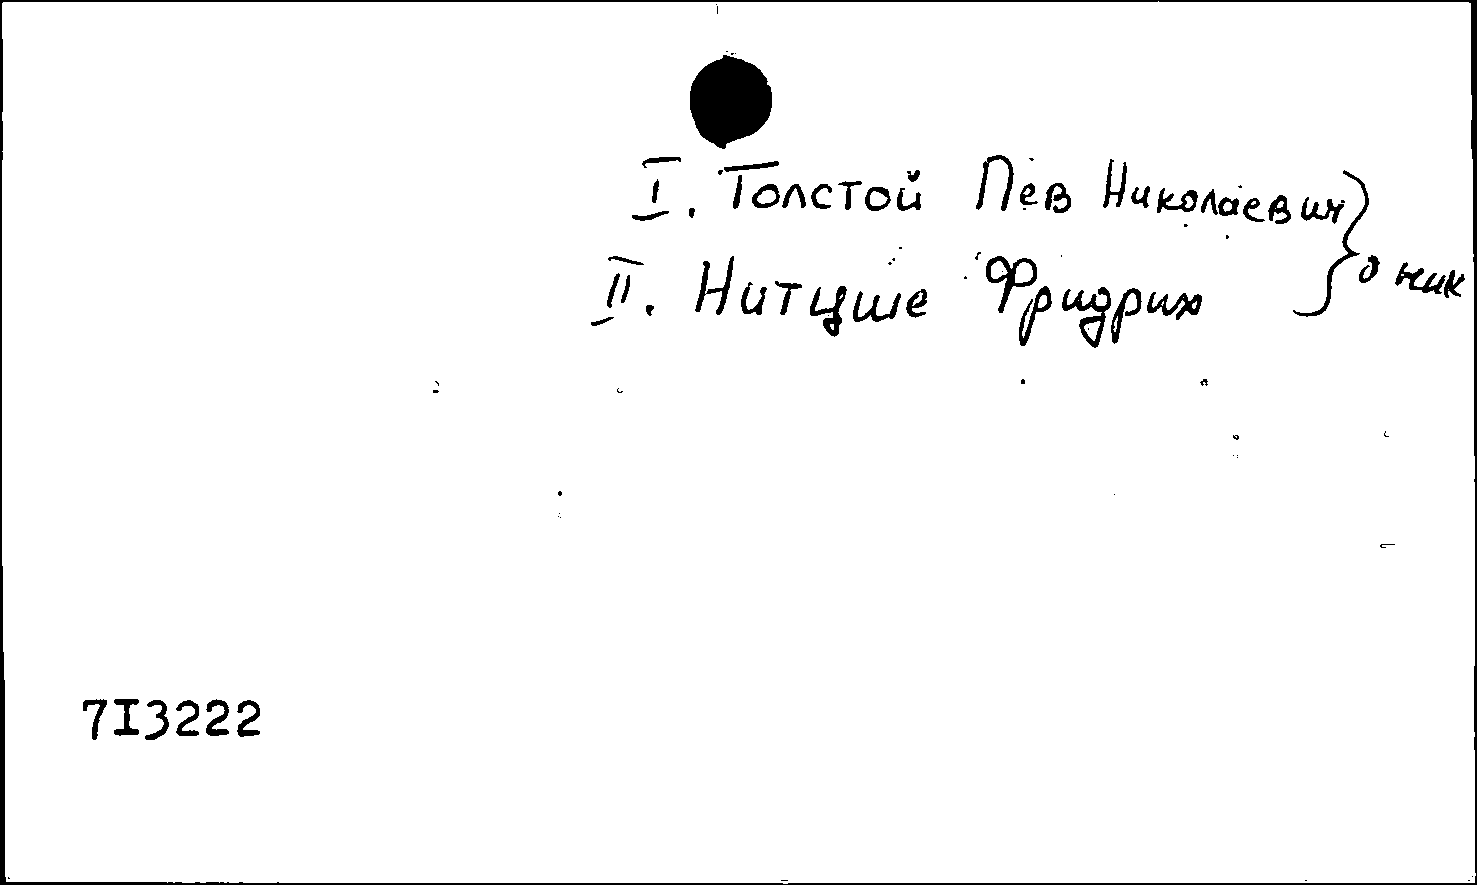 I. Толстой Лев Николаевич
II. Нитцше Фридрих
} о них
7I3222